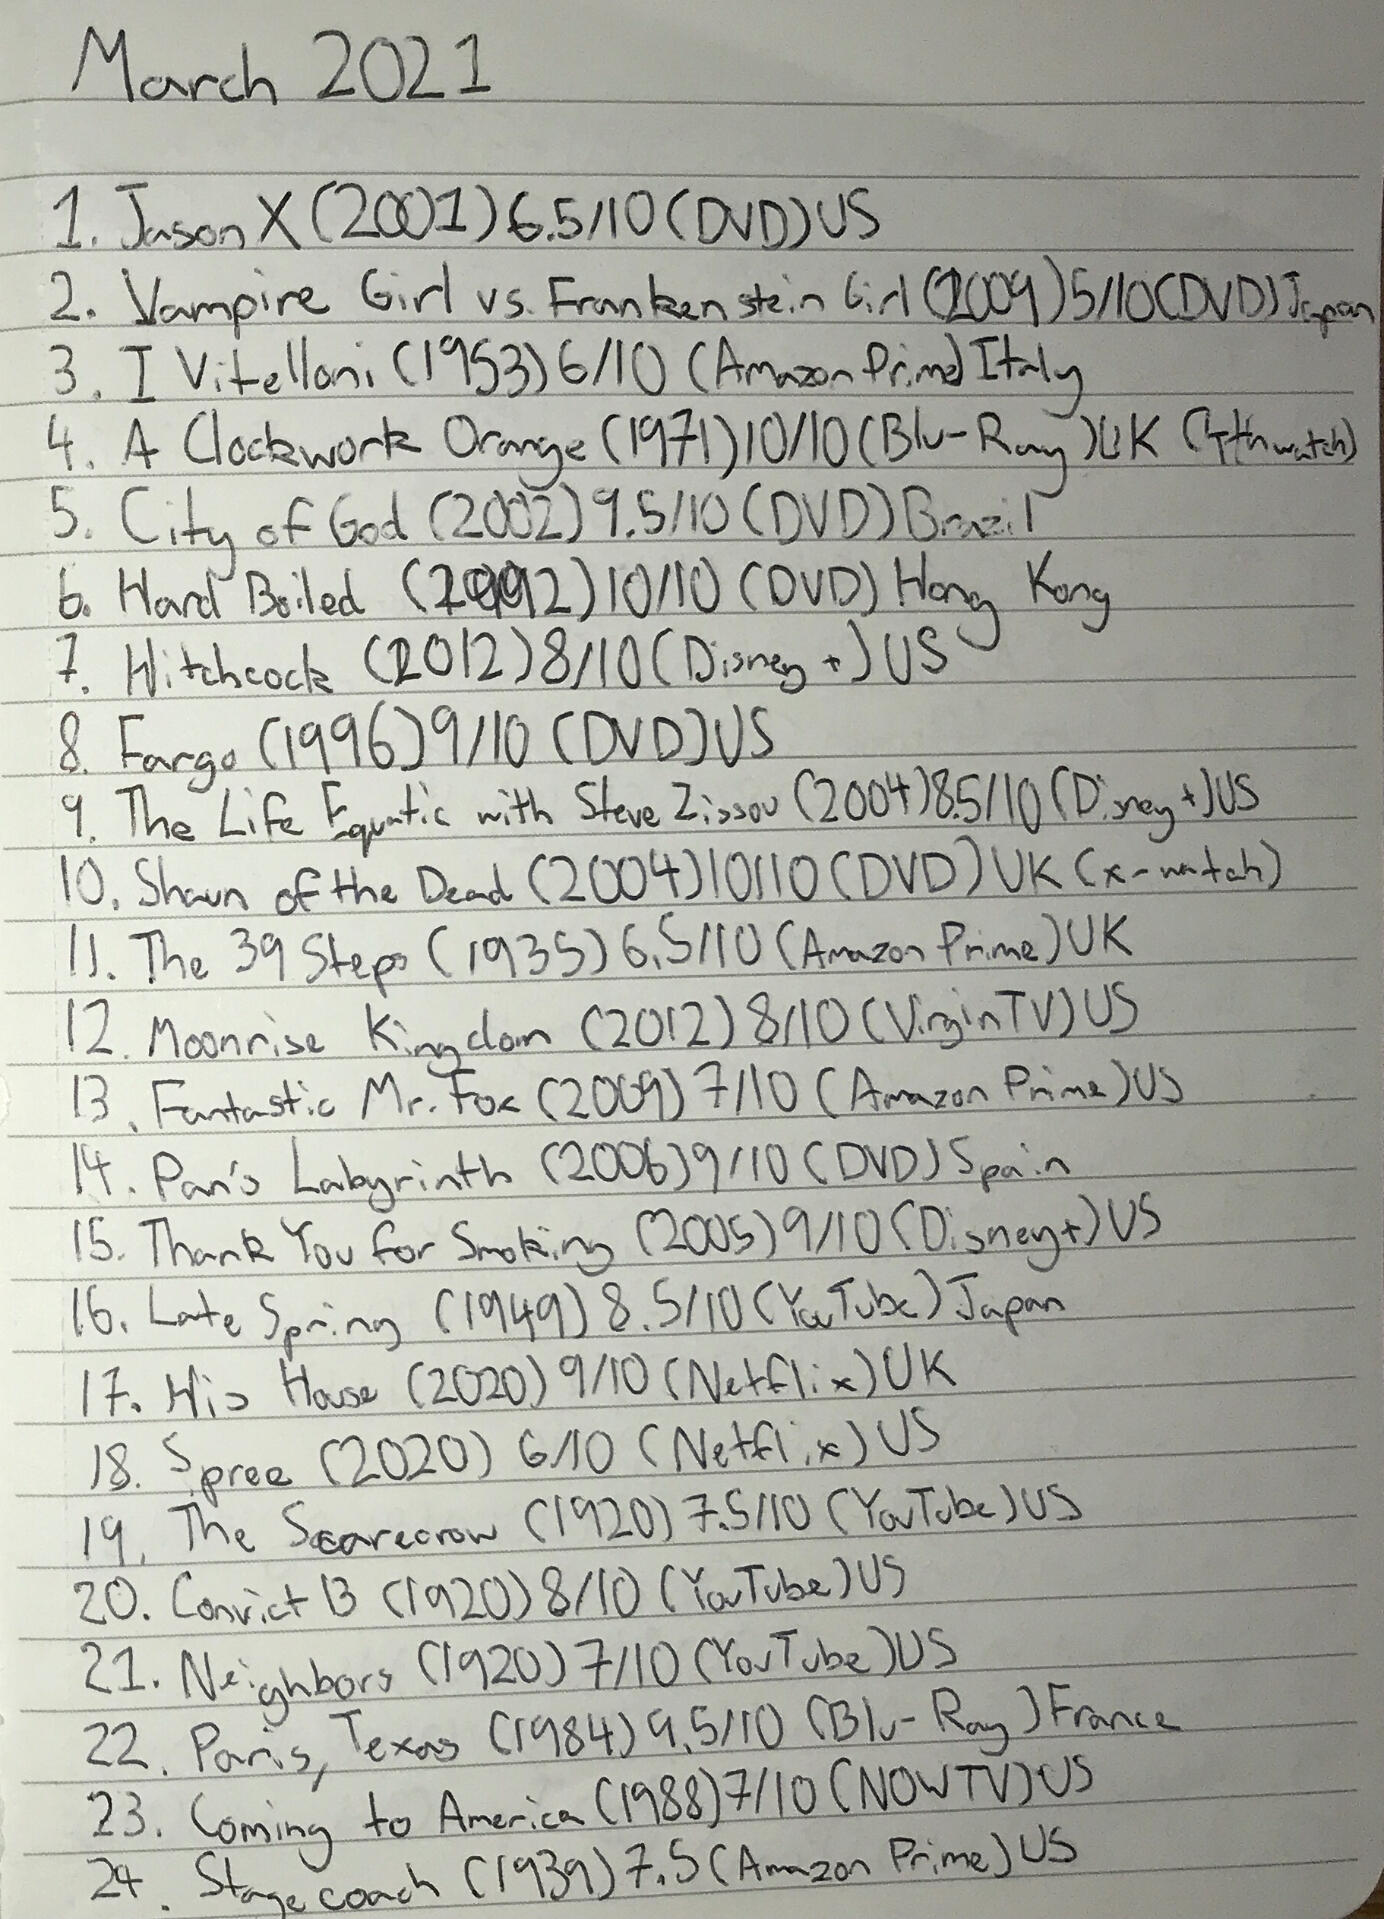 March 2021
1. Jason X (2001) 6.5/10 (DVD) US
2. Vampire Girl vs. Frankenstein Girl (2009) 5/10 (DVD) Japan
3. I Vitelloni (1953) 6/10 (Amazon Prime) Italy
4. A Clockwork Orange (1971) 10/10 (Blu-Ray) UK (4th watch)
5. City of God (2002) 9.5/10 (DVD) Brazil
6. Hard Boiled (1992) 10/10 (DVD) Hong Kong
7. Hitchcock (2012) 8/10 (Disney+) US
8. Fargo (1996) 9/10 (DVD) US
9. The Life Equatic with Steve Zissou (2004) 8.5/10 (Disney+) US
10. Shaun of the Dead (2004) 10/10 (DVD) UK (x-watch)
11. The 39 Steps (1935) 6.5/10 (Amazon Prime) UK
12. Moonrise Kingdom (2012) 8/10 (Virgin TV) US
13. Fantastic Mr. Fox (2009) 7/10 (Amazon Prime) US
14. Pan's Labyrinth (2006) 9/10 (DVD) Spain
15. Thank You for Smoking (2005) 9/10 (Disney+) US
16. Late Spring (1949) 8.5/10 (YouTube) Japan
17. His House (2020) 9/10 (Netflix) UK
18. Spree (2020) 6/10 (Netflix) US
19. The Scarecrow (1920) 7.5/10 (YouTube) US
20. Convict 13 (1920) 8/10 (YouTube) US
21. Neighbors (1920) 7/10 (YouTube) US
22. Paris, Texas (1984) 9.5/10 (Blu-Ray) France
23. Coming to America (1988) 7/10 (NOW TV) US
24. Stagecoach (1939) 7.5 (Amazon Prime) US